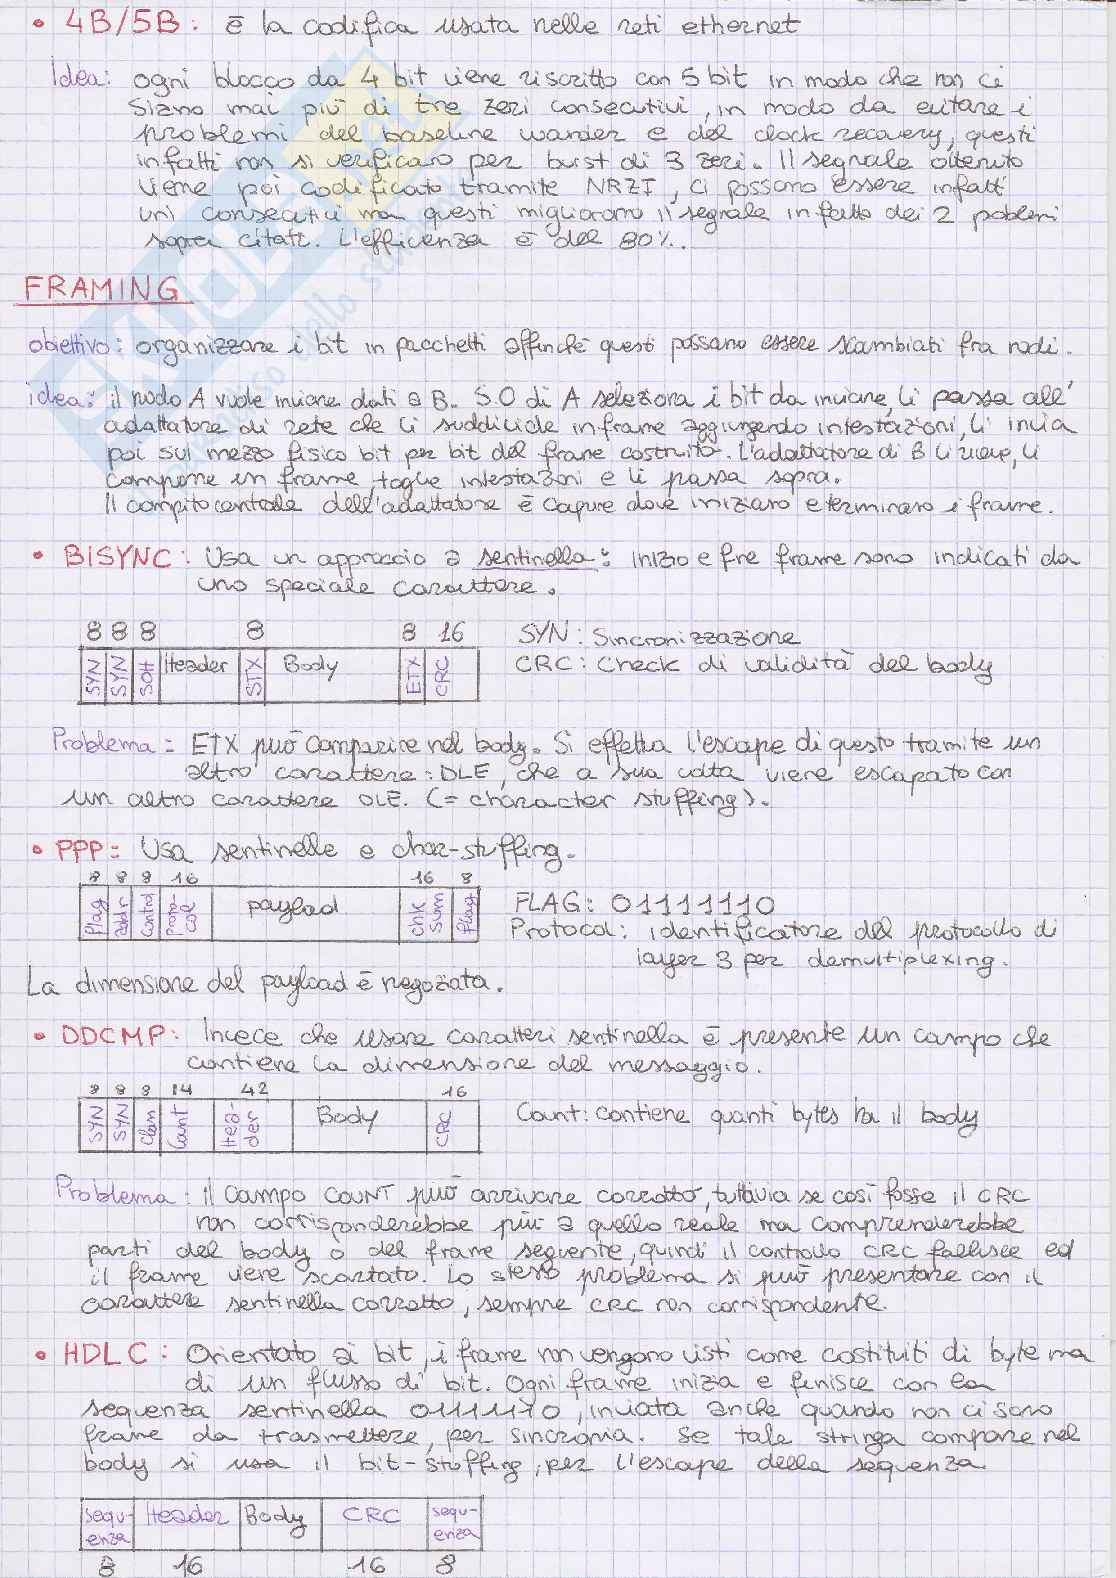 • 4B/5B: è la codifica usata nelle reti ethernet
Idea: ogni blocco da 4 bit viene riscritto con 5 bit in modo che non ci
siano mai più di tre zeri consecutivi, in modo da evitare i
problemi del baseline wander e del clock recovery, questi
infatti non si verificano per burst di 3 zeri. Il segnale ottenuto
viene poi codificato tramite NRZI, ci possono essere infatti
uni consecutivi ma questi migliorano il segnale in fatto dei 2 poblemi
sopra citati. L'efficenza è del 80%.
FRAMING
obiettivo: organizzare i bit in pacchetti affinchè questi possano essere scambiati fra nodi.
idea: il nodo A vuole inviare dati a B. S.O di A seleziona i bit da inviare, li passa all'
adattatore di rete che li suddivide in frame aggiungendo intestazioni, li invia
poi sul mezzo fisico bit per bit del frame costruito. L'adattatore di B li riceve, li
compone in frame toglie intestazioni e li passa sopra.
Il compito centrale dell'adattatore è capire dove iniziano e terminano i frame.
• BISYNC: Usa un approccio a sentinella: inizio e fine frame sono indicati da
uno speciale carattere.
8 8 8 8 8 16
SYN SYN SOH Header STX Body ETX CRC
SYN: Sincronizzazione
CRC: Check di validità del body
Problema: ETX può comparire nel body. Si effettua l'escape di questo tramite un
altro carattere: DLE, che a sua volta viene escapato con
un altro carattere DLE. (= character stuffing).
• PPP: Usa sentinelle e char-stuffing.
8 8 8 16 16 8
Flag addr control Proto-col payload chk sum Flag
FLAG: 01111110
Protocol: identificatore del protocollo di
layer 3 per demultiplexing.
La dimensione del payload è negoziata.
• DDCMP: Invece che usare caratteri sentinella è presente un campo che
contiene la dimensione del messaggio.
8 8 8 14 42 16
SYN SYN Class Count Hea-der Body CRC
Count: contiene quanti bytes ha il body
Problema: il campo COUNT può arrivare corrotto, tuttavia se così fosse il CRC
non corrisponderebbe più a quello reale ma comprenderebbe
parti del body o del frame seguente, quindi il controllo CRC fallisce ed
il frame viene scartato. Lo stesso problema si può presentare con il
carattere sentinella corrotto, sempre CRC non corrispondente.
• HDLC: Orientato ai bit, i frame non vengono visti come costituiti di byte ma
di un flusso di bit. Ogni frame inizia e finisce con la
sequenza sentinella 01111110, inviata anche quando non ci sono
frame da trasmettere, per sincronia. Se tale stringa compare nel
body si usa il bit-stuffing, per l'escape della sequenza.
sequ-enza Header Body CRC sequ-enza
8 16 16 8